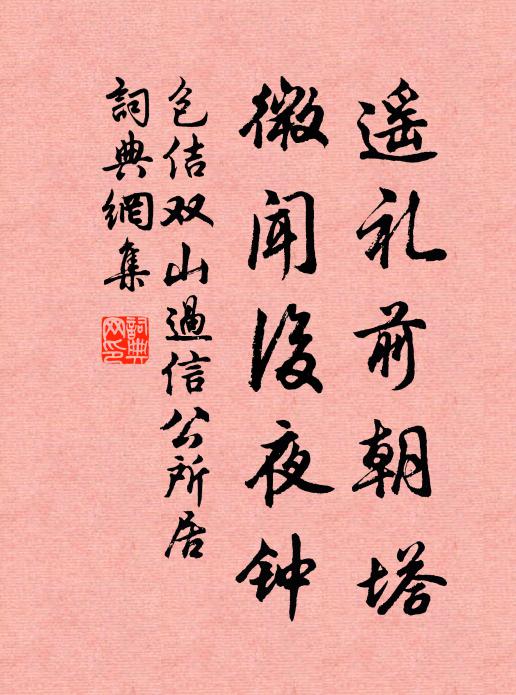 遥礼前朝塔
微闻後夜钟
包佶双山過信公所居
詞典網集
詞典網印